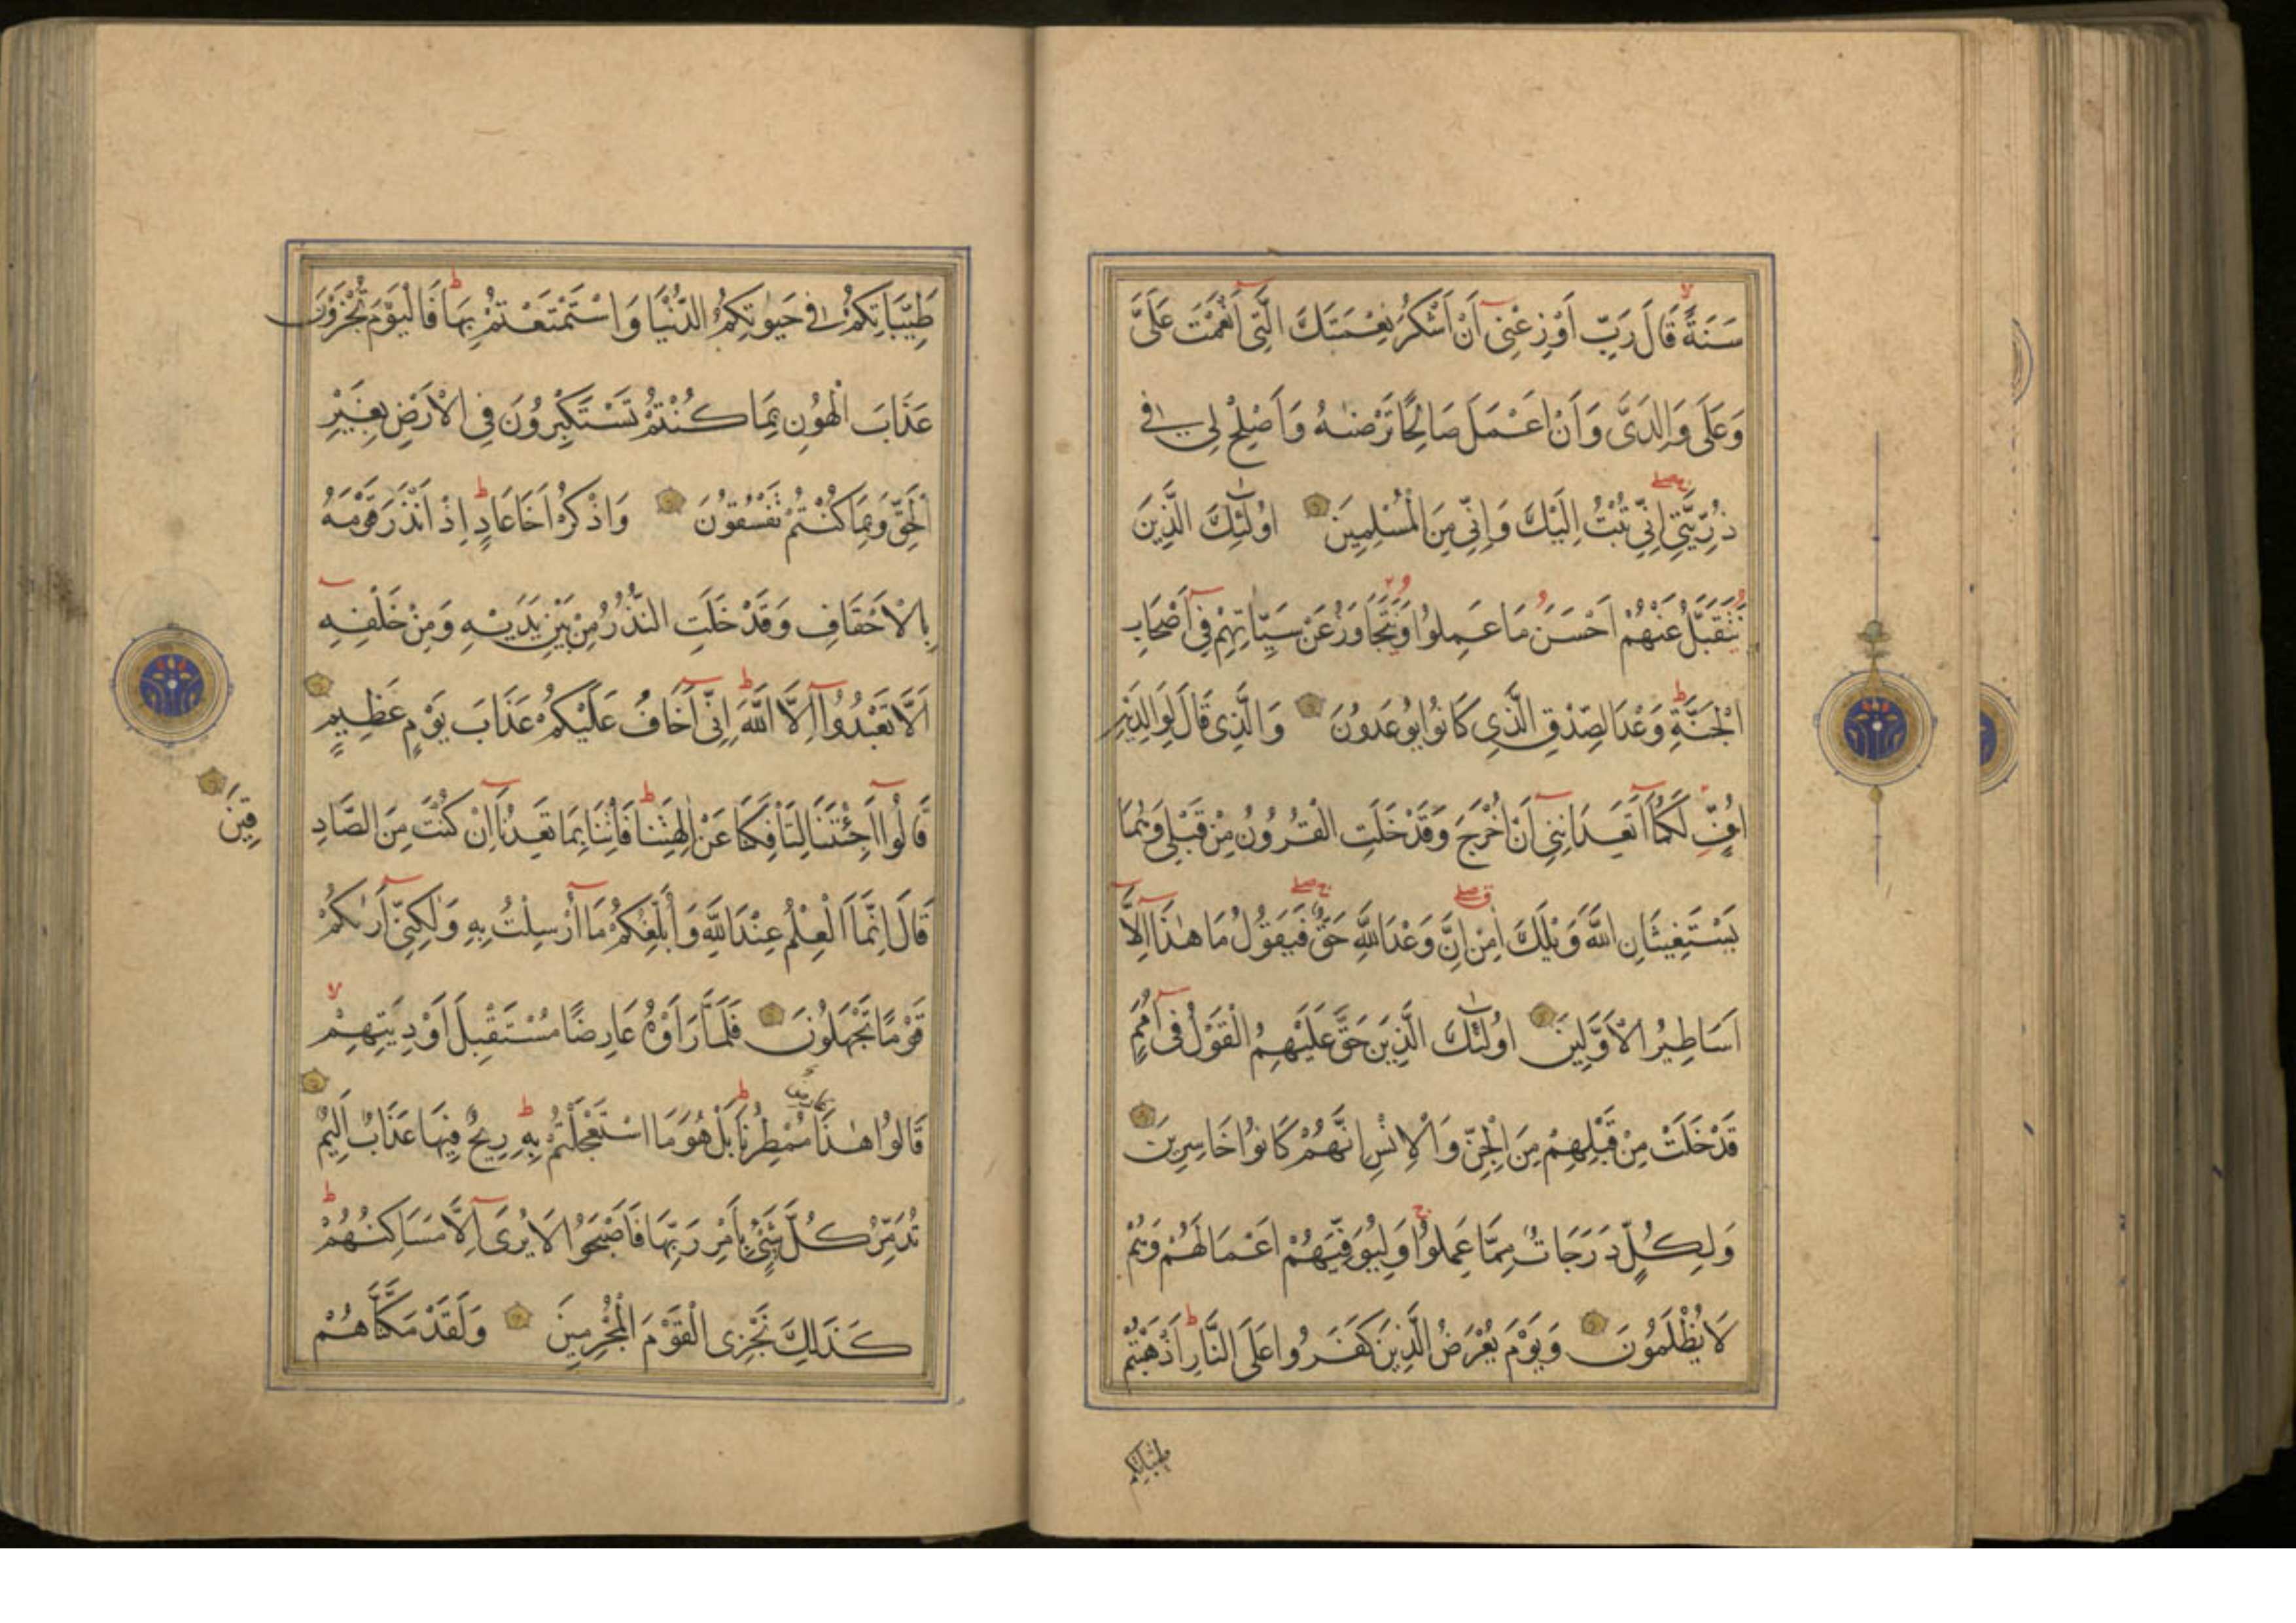 سَنَةً قَالَ رَبِّ اَوْزِعْنِى اَنْ اَشْكُرَ نِعْمَتَكَ الَّتِى اَنْعَمْتَ عَلَىَّ
وَعَلَى وَالِدَىَّ وَاَنْ اَعْمَلَ صَالِحًا تَرْضٰيهُ وَاَصْلِحْ لِى فِى
ذُرِّيَّتِى اِنِّى تُبْتُ اِلَيْكَ وَاِنِّى مِنَ الْمُسْلِمِينَ اُولٰئِكَ الَّذِينَ
نَتَقَبَّلُ عَنْهُمْ اَحْسَنَ مَا عَمِلُوا وَنَتَجَاوَزُ عَنْ سَيِّاٰتِهِمْ فِى اَصْحَابِ
الْجَنَّةِ وَعْدَ الصِّدْقِ الَّذِى كَانُوا يُوعَدُونَ وَالَّذِى قَالَ لِوَالِدَيْهِ
اُفٍّ لَكُمَا اَتَعِدَانِنِى اَنْ اُخْرَجَ وَقَدْ خَلَتِ الْقُرُونُ مِنْ قَبْلِى وَهُمَا
يَسْتَغِيثَانِ اللّٰهَ وَيْلَكَ اٰمِنْ اِنَّ وَعْدَ اللّٰهِ حَقٌّ فَيَقُولُ مَا هٰذَا اِلَّا
اَسَاطِيرُ الْاَوَّلِينَ اُولٰئِكَ الَّذِينَ حَقَّ عَلَيْهِمُ الْقَوْلُ فِى اُمَمٍ
قَدْ خَلَتْ مِنْ قَبْلِهِمْ مِنَ الْجِنِّ وَالْاِنْسِ اِنَّهُمْ كَانُوا خَاسِرِينَ
وَلِكُلٍّ دَرَجَاتٌ مِمَّا عَمِلُوا وَلِيُوَفِّيَهُمْ اَعْمَالَهُمْ وَهُمْ
لَا يُظْلَمُونَ وَيَوْمَ يُعْرَضُ الَّذِينَ كَفَرُوا عَلَى النَّارِ اَذْهَبْتُمْ
طيباتكم
طَيِّبَاتِكُمْ فِى حَيٰوتِكُمُ الدُّنْيَا وَاسْتَمْتَعْتُمْ بِهَا فَالْيَوْمَ تُجْزَوْنَ
عَذَابَ الْهُونِ بِمَا كُنْتُمْ تَسْتَكْبِرُونَ فِى الْاَرْضِ بِغَيْرِ
الْحَقِّ وَبِمَا كُنْتُمْ تَفْسُقُونَ وَاذْكُرْ اَخَا عَادٍ اِذْ اَنْذَرَ قَوْمَهُ
بِالْاَحْقَافِ وَقَدْ خَلَتِ النُّذُرُ مِنْ بَيْنِ يَدَيْهِ وَمِنْ خَلْفِهِ
اَلَّا تَعْبُدُوا اِلَّا اللّٰهَ اِنِّى اَخَافُ عَلَيْكُمْ عَذَابَ يَوْمٍ عَظِيمٍ
قَالُوا اَجِئْتَنَا لِتَاْفِكَنَا عَنْ اٰلِهَتِنَا فَاْتِنَا بِمَا تَعِدُنَا اِنْ كُنْتَ مِنَ الصَّادِ
قِينَ
قَالَ اِنَّمَا الْعِلْمُ عِنْدَ اللّٰهِ وَاُبَلِّغُكُمْ مَا اُرْسِلْتُ بِهِ وَلٰكِنِّى اَرٰيكُمْ
قَوْمًا تَجْهَلُونَ فَلَمَّا رَاَوْهُ عَارِضًا مُسْتَقْبِلَ اَوْدِيَتِهِمْ
قَالُوا هٰذَا عَارِضٌ مُمْطِرُنَا بَلْ هُوَ مَا اسْتَعْجَلْتُمْ بِهِ رِيحٌ فِيهَا عَذَابٌ اَلِيمٌ
تُدَمِّرُ كُلَّ شَىْءٍ بِاَمْرِ رَبِّهَا فَاَصْبَحُوا لَا يُرَى اِلَّا مَسَاكِنُهُمْ
كَذَالِكَ نَجْزِى الْقَوْمَ الْمُجْرِمِينَ وَلَقَدْ مَكَّنَّاهُمْ